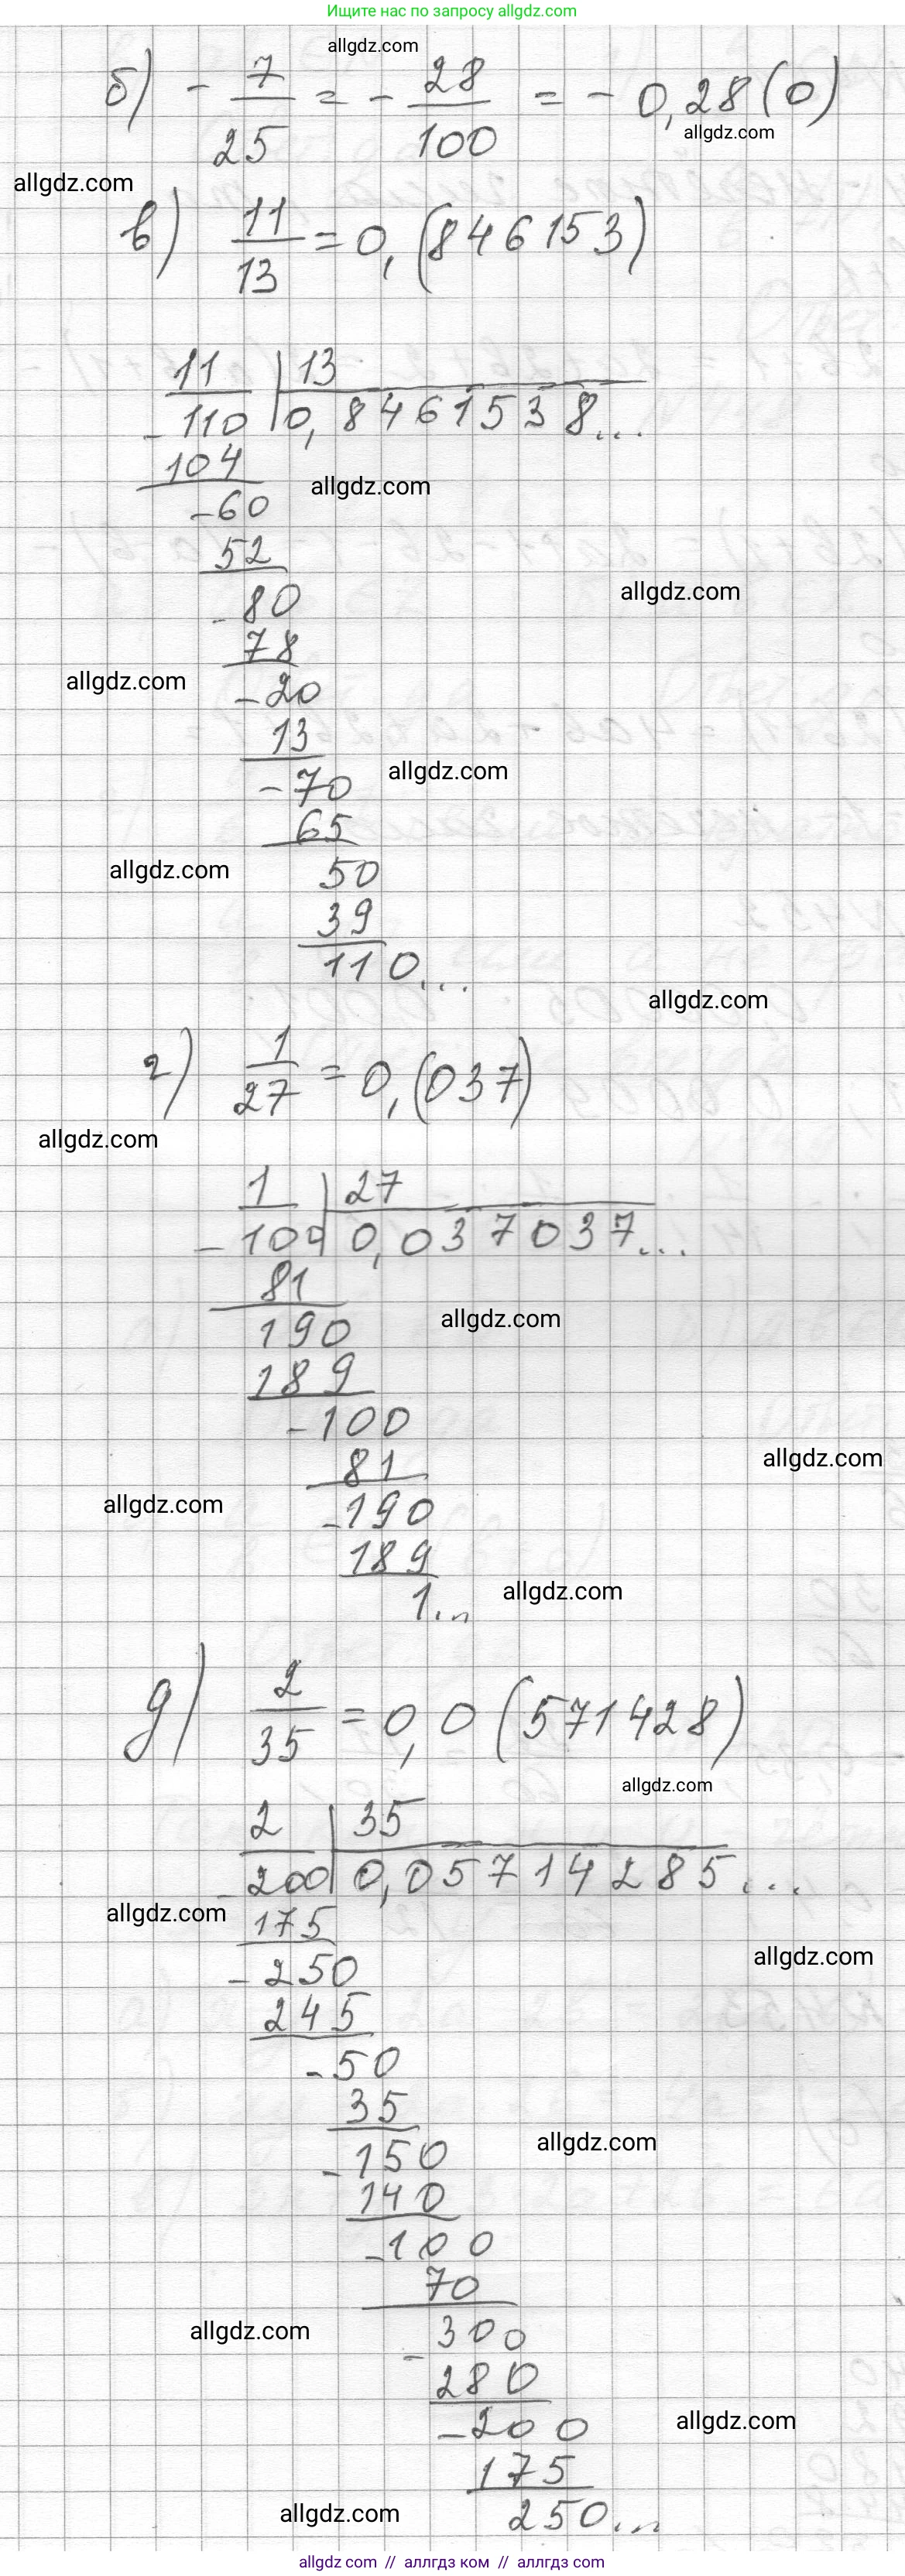 Ищите нас по запросу allgdz.com
allgdz.com
б) - 7/25 = - 28/100 = - 0,28(0)
allgdz.com
allgdz.com
в) 11/13 = 0,(846153)
11 | 13
- 110 | 0,8461538...
104
allgdz.com
- 60
52
allgdz.com
- 80
78
allgdz.com
- 20
13
allgdz.com
- 70
65
allgdz.com
50
39
110...
allgdz.com
г) 1/27 = 0,(037)
allgdz.com
1 | 27
- 100 | 0,037037...
81
allgdz.com
190
189
- 100
allgdz.com
81
allgdz.com
- 190
189
allgdz.com
1...
д) 2/35 = 0,0(571428)
allgdz.com
2 | 35
- 200 | 0,05714285...
allgdz.com
175
allgdz.com
- 250
245
- 50
35
allgdz.com
- 150
140
- 100
70
allgdz.com
- 300
280
allgdz.com
- 200
175
allgdz.com
250...
allgdz.com // аллгдз ком // аллгдз.com